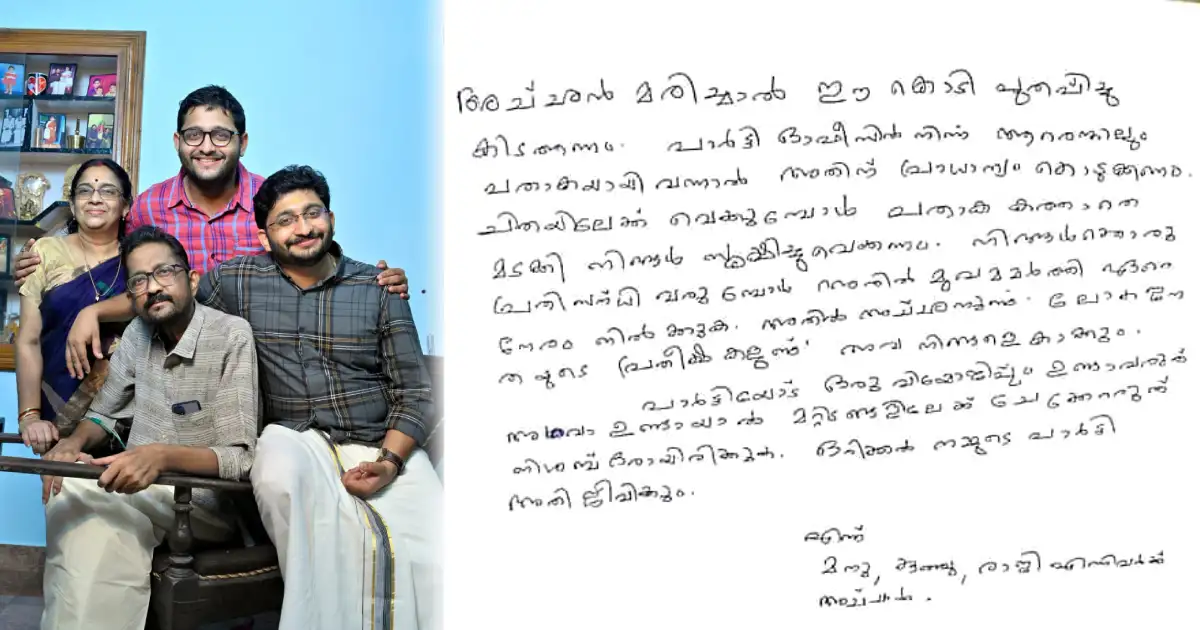 അച്ഛൻ മരിച്ചാൽ ഈ കൊടി പുതപ്പിച്ചു
കിടത്തണം. പാർട്ടി ഓഫീസിൽ നിന്ന് ആരെങ്കിലും
പതാകയായി വന്നാൽ അതിന് പ്രാധാന്യം കൊടുക്കണം.
ചിതയിലേക്ക് വെക്കുമ്പോൾ പതാക കത്താതെ
മടക്കി നിങ്ങൾ സൂക്ഷിച്ചുവെക്കണം. നിങ്ങൾക്കൊരു
പ്രതിസന്ധി വരുമ്പോൾ അതിൽ മുഖമമർത്തി ഏറെ
നേരം നിൽക്കുക. അതിൽ അച്ഛനുണ്ട്. ലോകജന
തയുടെ പ്രതീക്ഷകളുണ്ട്. അവ നിങ്ങളെ കാക്കും.
പാർട്ടിയോട് ഒരു വിയോജിപ്പും ഉണ്ടാവരുത്
അഥവാ ഉണ്ടായാൽ മറ്റിടങ്ങളിലേക്ക് ചേക്കേറരുത്
നിശബ്ദരായിരിക്കുക. ഒരിക്കൽ നമ്മുടെ പാർട്ടി
അതിജീവിക്കും.
എന്ന്
മനു, കുഞ്ചു, രാജി എന്നിവർക്ക്
അച്ഛൻ.